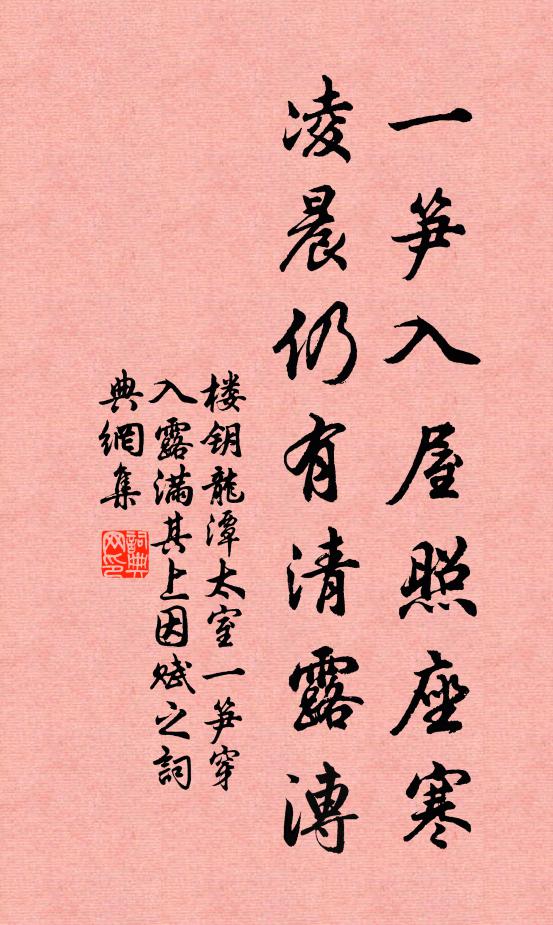 一笋入屋照座寒
凌晨仍有清露漙
楼钥龍潭太室一笋穿
入露满其上因赋之詞
典網集
詞典
网印